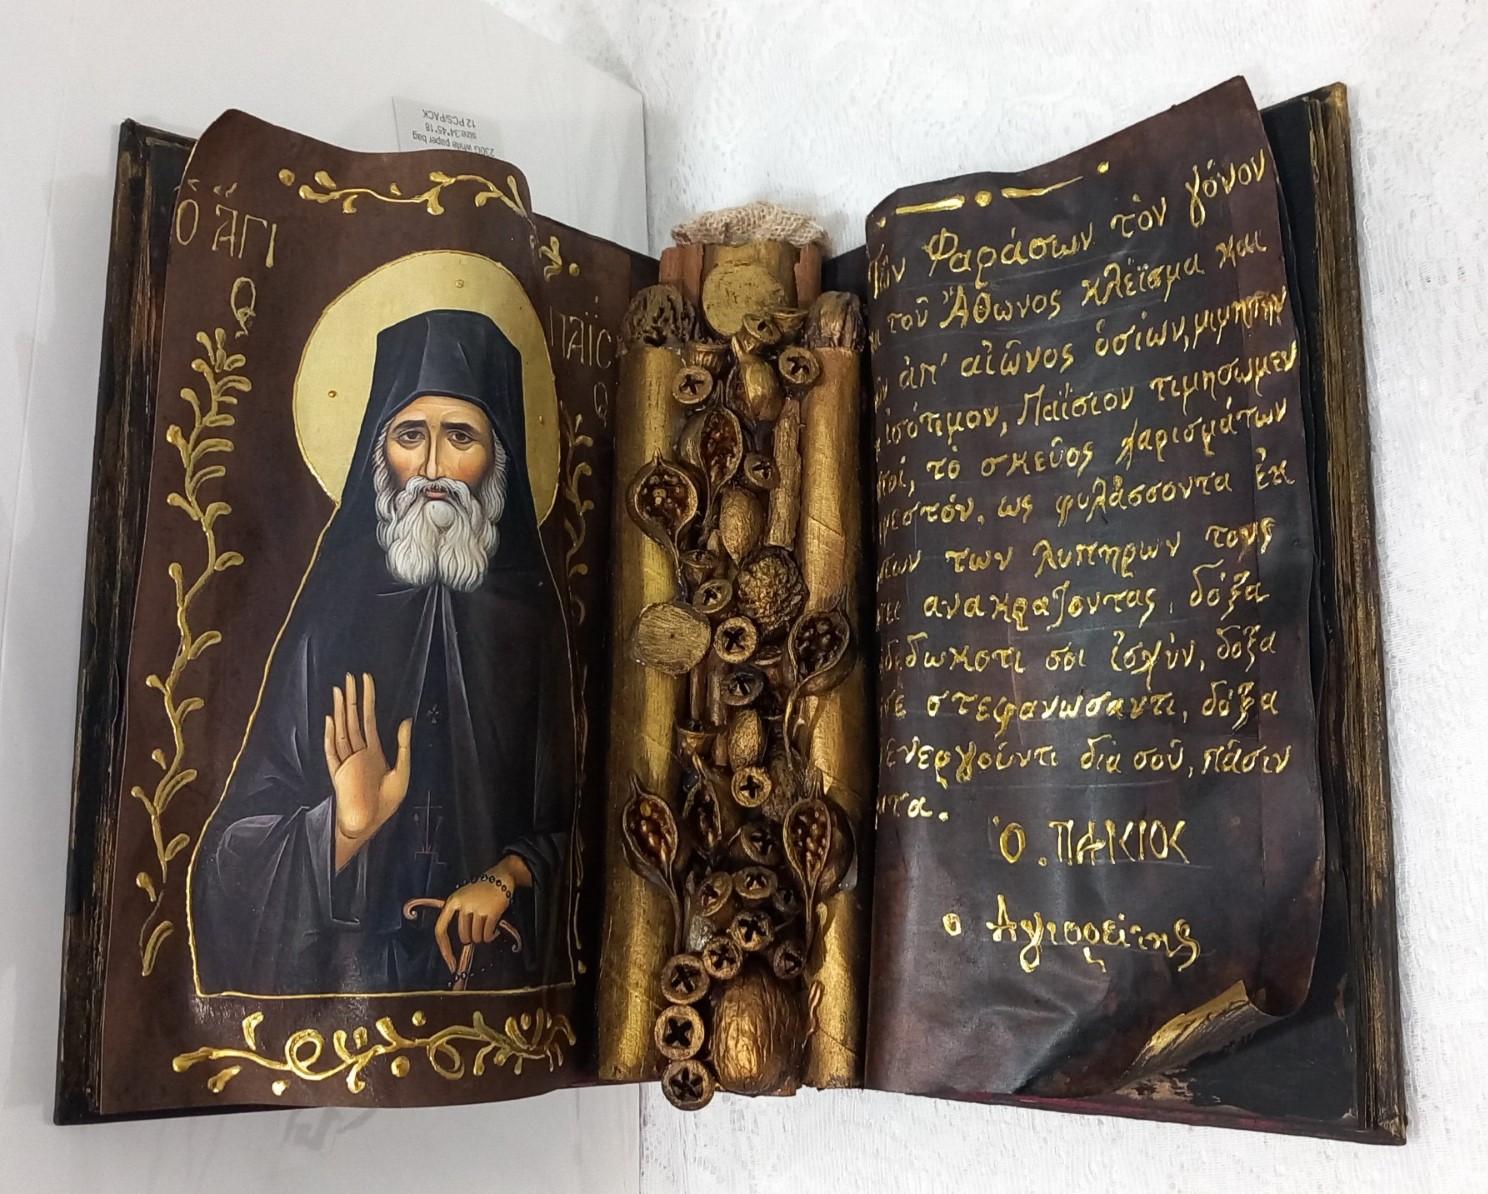 230G white paper bag
size:34*45*18
12 PCS/PACK
Ὁ ἍΓΙ
Ο
ΠΑΪΣ
Ο
Τῶν Φαράσων τὸν γόνον
τοῦ Ἄθωνος κλέϊσμα και
ἀπ' αἰῶνος ὁσίων, μιμητὴν
ἰσότιμον, Παΐσιον τιμησωμεν
τὸ σκεῦος χαρισμάτων
ως φυλάσσοντα ἐκ
των λυπηρων τους
ανακραζοντας, δόξα
σοι ἰσχὺν, δόξα
στεφανωσαντι, δόξα
ενεργούντι δια σοῦ, πᾶσιν
Ὁ. ΠΑΙCΙΟC
ο Αγιορείτης